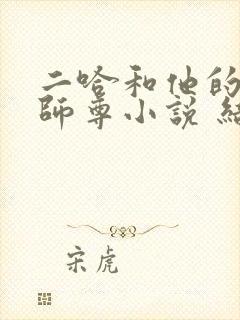 二哈和他的
師尊小說 結
宋虎